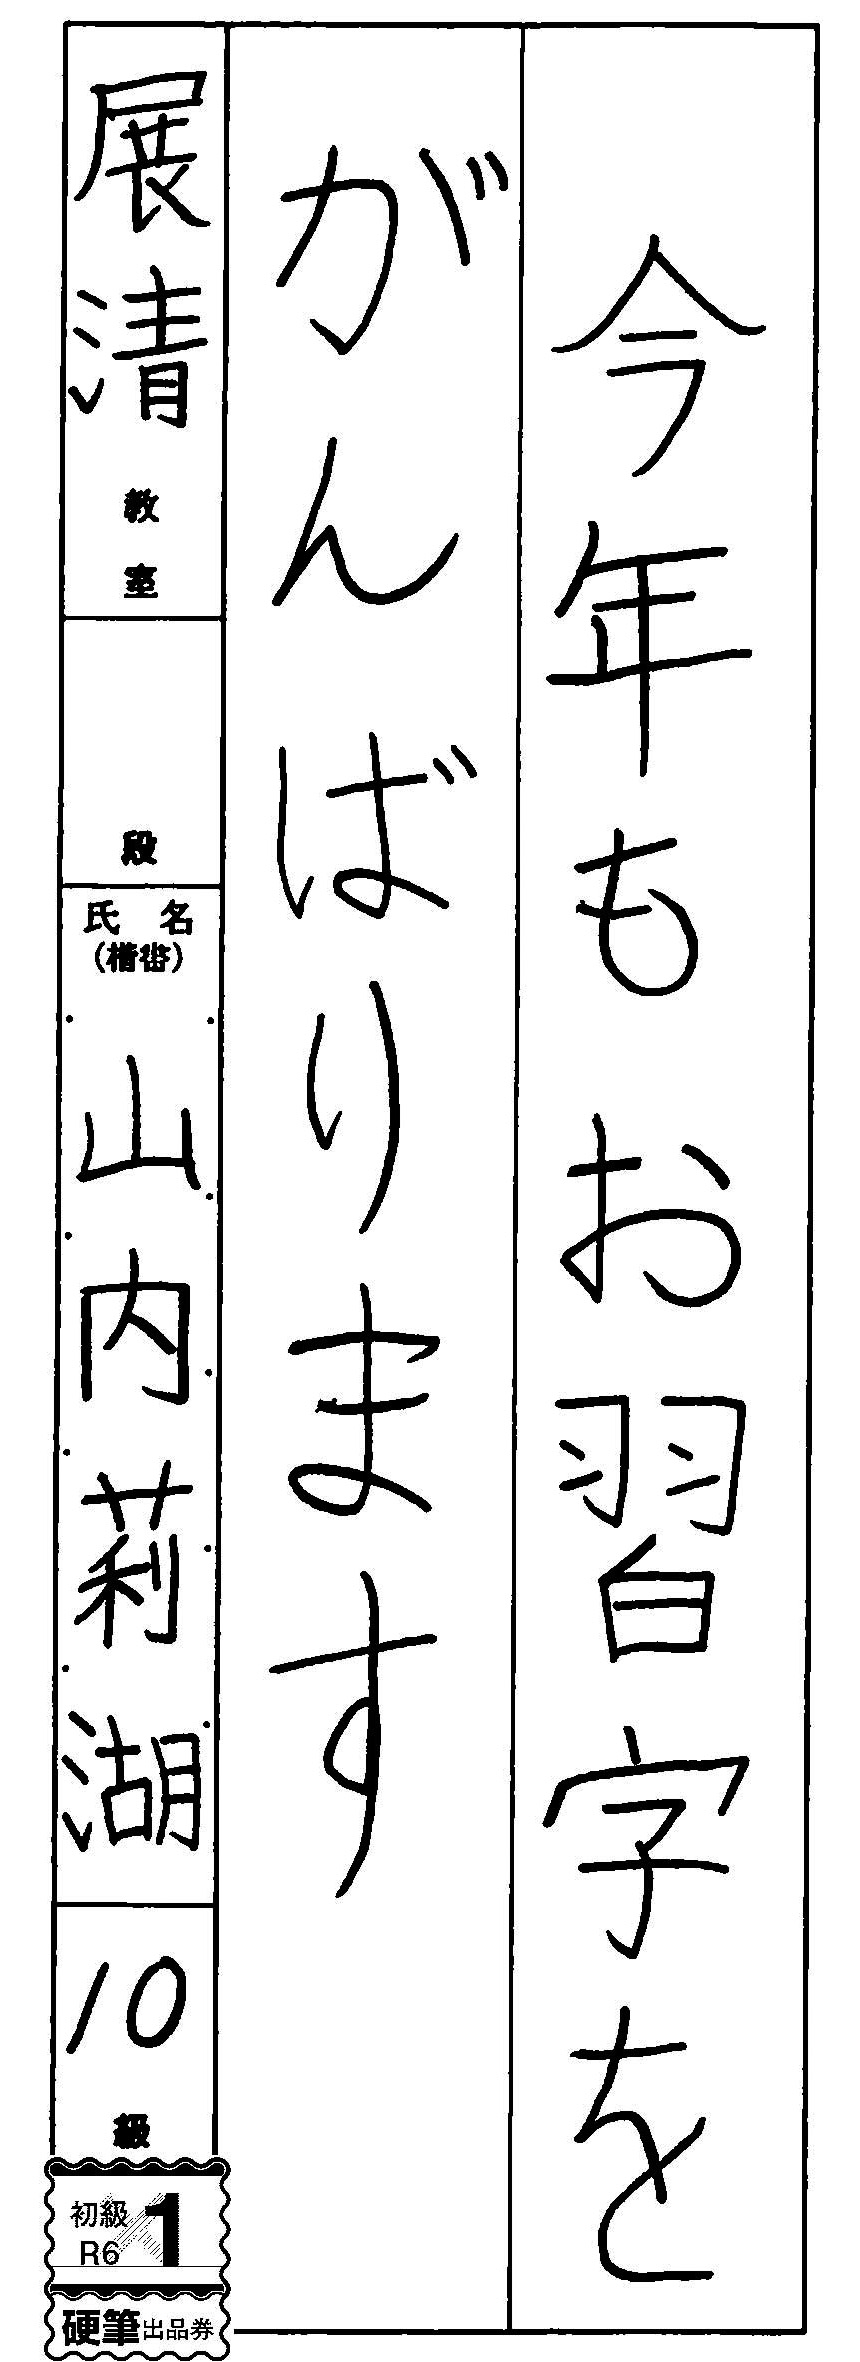 今年もお習字を
がんばります
展清教室
段
氏名
(楷書)
山内莉湖
10級
初級
R6
1
硬筆出品券